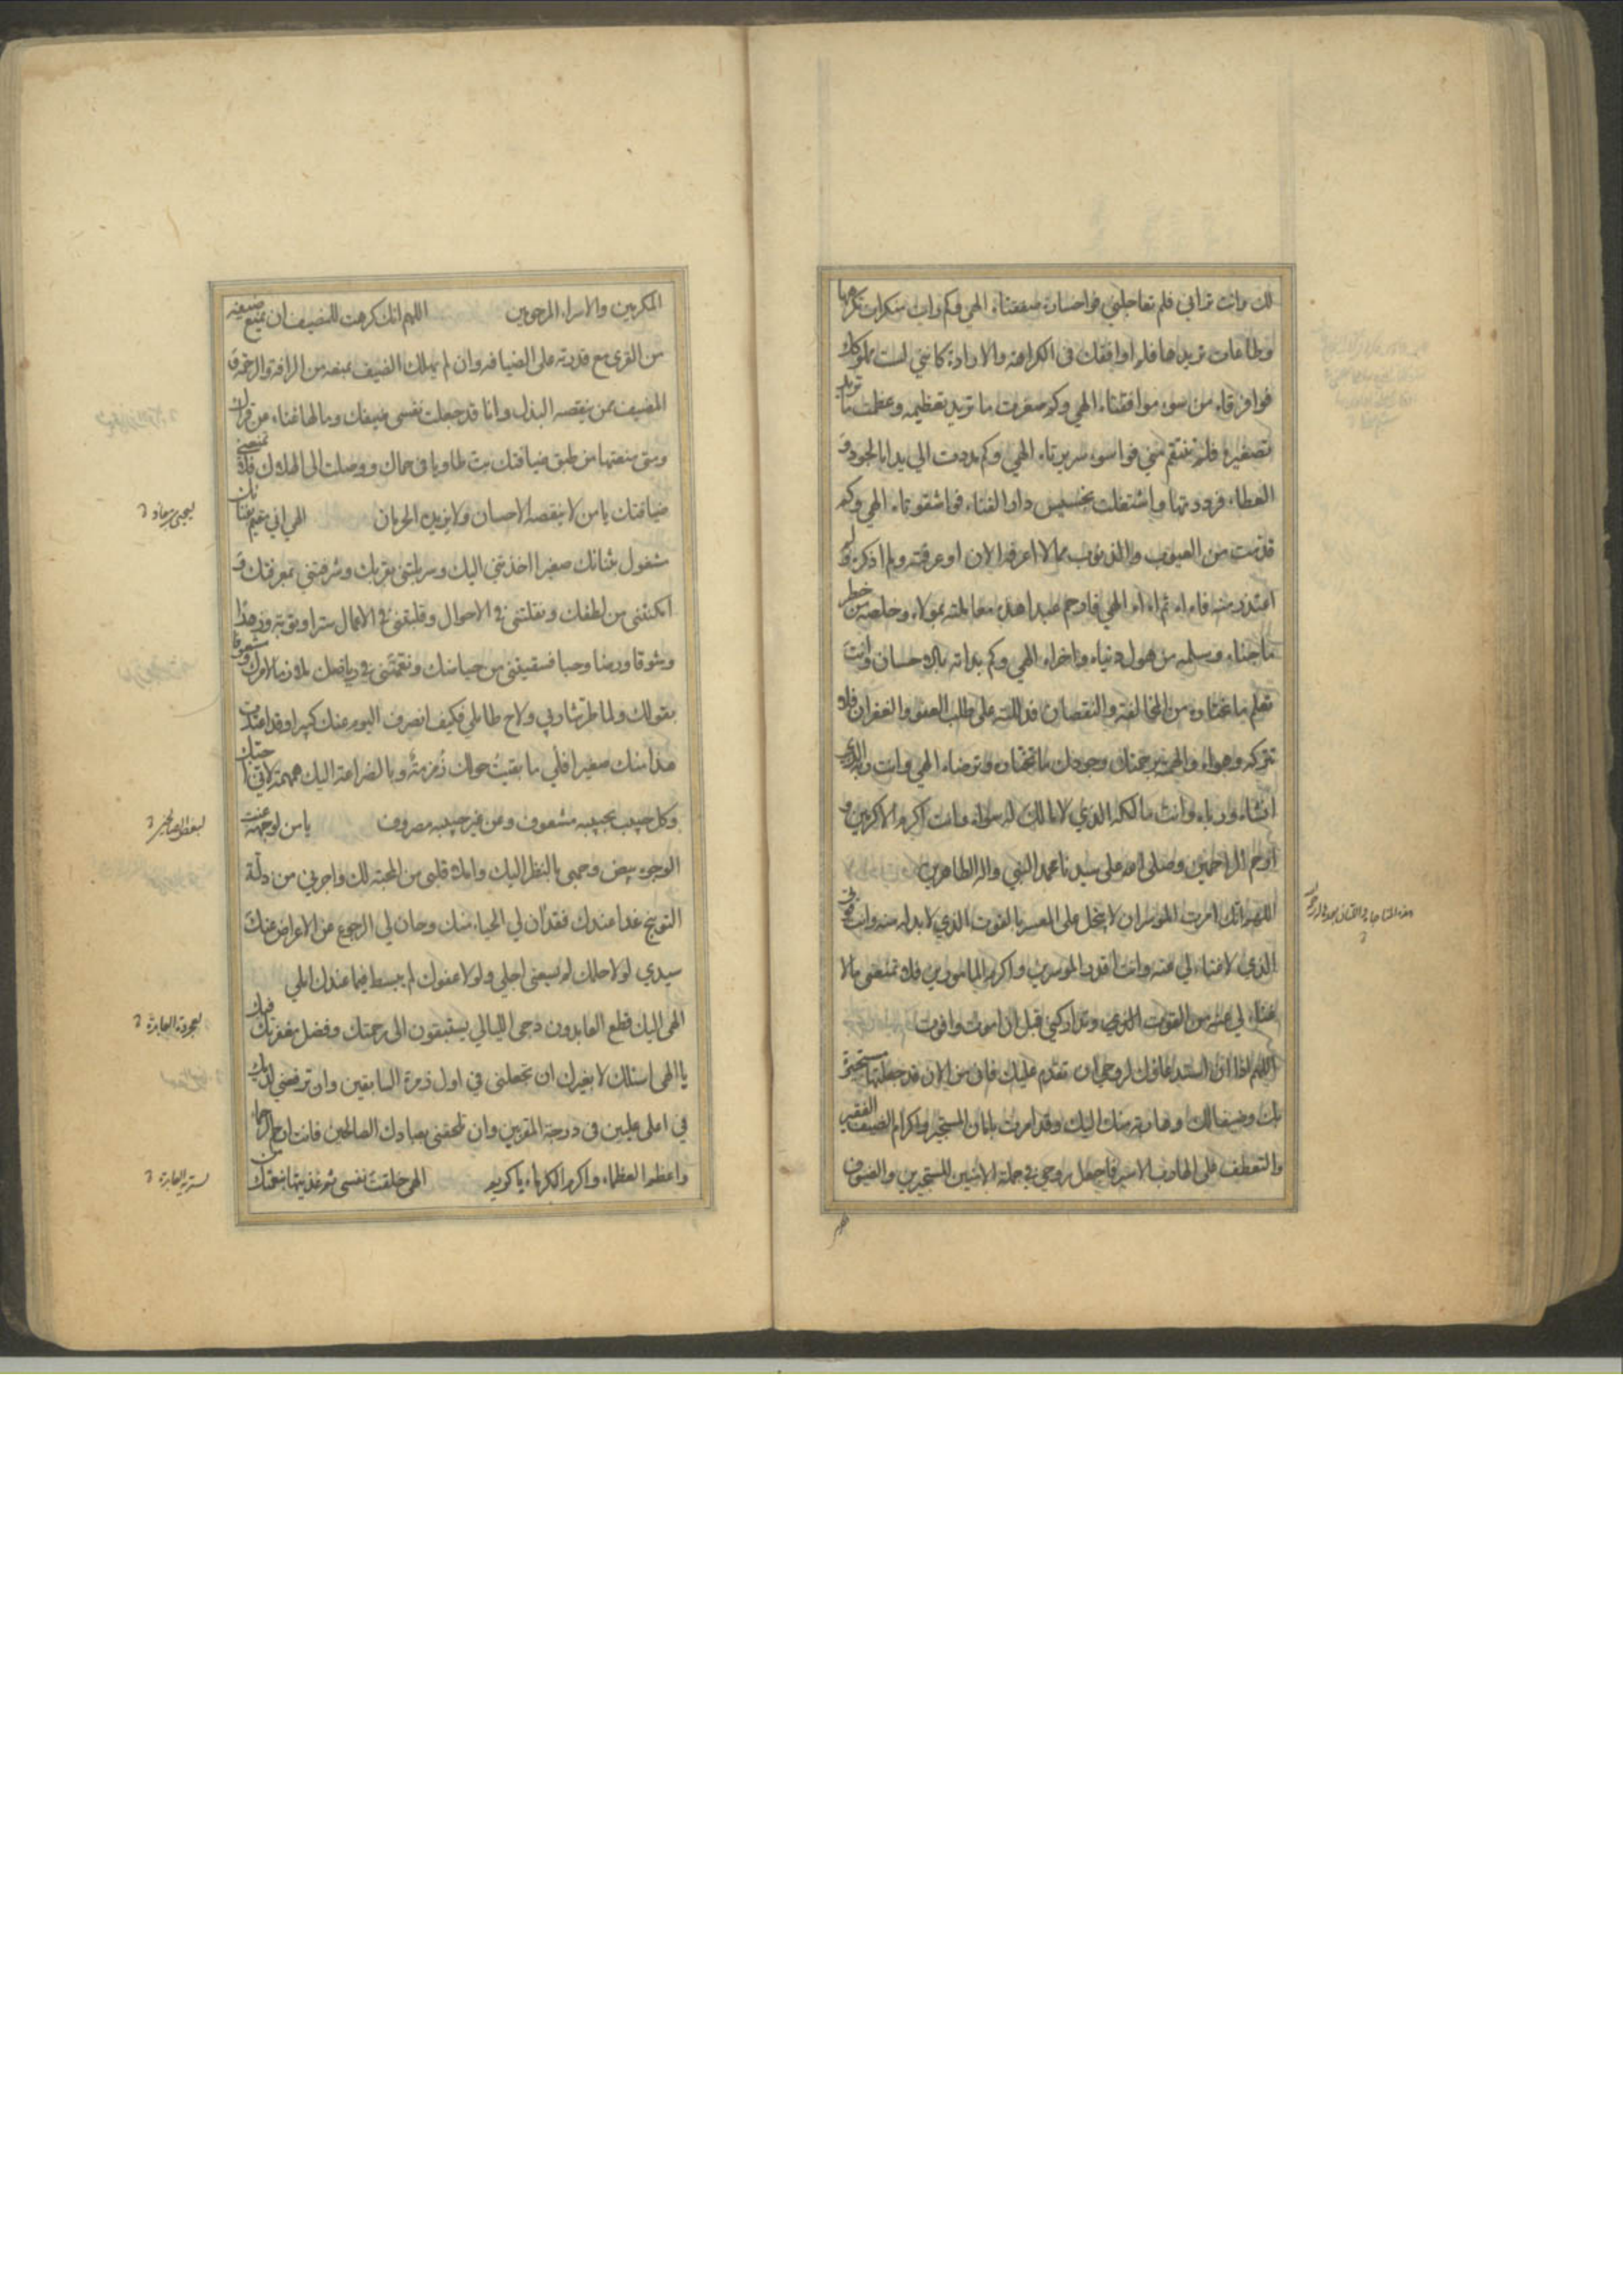 لك وانت تراني فلم تعاجلني فواخسارة صفقتاه الهي وكم واب منكرات تكرهها
وطاعات تريدها فلم اوافقك في الكراهة والارادة كانني لست بملوكك
فوافرقاه من سوء موافقتاه الهي وكم صغرت ما تريد تعظيمه وعظمت ما تريد
تصغيره فلم تنتقم مني فواسوء سريرتاه الهي وكم مددت الي يدا بالجود و
العطاء فرددتها واشتغلت بخسيس دار الفناء فواشقوتاه الهي وكم
قدمت من العيوب والذنوب مما لا اعرفه الان او عرفته ولم اذكره ولم
اعتذر منه فاه اه ثم اه اه الهي فارحم عبدا هذه معاملته بمولاه وخلصه من خطر
ما جناه وسلمه من هول دنياه واخراه الهي وكم بداته بالاحسان وانت
تعلم ما يخشاه من المخالفة والنقصان فدللته على طلب العفو والغفران فلا
تتركه وهواه والهمه برحمتك وجودك ما تختاره وترضاه الهي وانت ربه الذي
انشاه ورباه وانت مالكه الذي لا مالك له سواه وانت اكرم الاكرمين و
ارحم الراحمين وصلى الله على سيدنا محمد النبي واله الطاهرين
اللهم انك امرت الموسر ان لا يبخل على المعسر بالقوت الذي لا بد له منه وانت قوتي
الذي لا غناء لي عنه وانت اقدر الموسرين واكرم المامورين فلا تمنعني مالا
غناء لي عنه من القوت الذي وتداركني قبل ان اموت وافوت
اللهم اذا ان استدعاؤك لروحي ان تقدم عليك فان من الان قد جعلتها مستجيرة
بك وضيفا لك وهاربة منك اليك وقد امرت بامان المستجير واكرام الضيف الفقير
والتعطف على الهارب الاسير فاجعل روحي في جملة الامنين المستجيرين والضيوف
المكرمين والاسراء المرحومين اللهم انك كرهت للمضيف ان يمنع ضيفه
من القرى مع قدرته على الضيافه وان لم يملك الضيف بمنعه من الرافة والرحمة و
المضيف ممن ينقصه البذل وانا قد جعلت نفسي ضيفك وما لها غناء عن قراك
ومتى منعتها من طبق ضيافتك بت طاويا في حماك ووصلت الى الهلاك فلا تمنعني
ضيافتك يا من لا ينقصه الاحسان ولا يزيده الحرمان الهي اني مقيم بفنائك
مشغول بثنائك صغيرا اخذتني اليك وسربلتني بقربك وشرفتني بمعرفتك و
امكنتني من لطفك ونقلتني في الاحوال وقلبتني في الاعمال سترا وتوبة وزهدا
وشوقا ورضا وحبا فسقيتني من حياضك ونعمتني في رياضك ملازما لامرك ومشعوفا
بقولك ولما طر شاربي ولاح طايلي فكيف انصرف اليوم عنك كبيرا وقد اعتدت
هذا منك صغيرا فلي ما بقيت حولك زمزمة وبالضراعة اليك همهمة لاني احبك
وكل حبيب بحبيبه مشعوف وعن غير حبيبه مصروف يا من لوجهه عنت
الوجوه بيض وجهي بالنظر اليك واملاء قلبي من المحبة لك واجرني من ذلة
التوبيخ غدا عندك فقد ان لي الحياء منك وحان لي الرجوع عن الاعراض عنك
سيدي لولا حلمك لم يسعني اجلي ولولا عفوك لم يبسط فيما عندك املي
الهي اليك قطع العابدون دجى الليالي يستبقون الى رحمتك وفضل مغفرتك فبك
يا الهي اسئلك لا بغيرك ان تجعلني في اول زمرة السابقين وان ترفعني لديك
في اعلى عليين في درجة المقربين وان تلحقني بعبادك الصالحين فانت ارحم الرحماء
واعظم العظماء واكرم الكرماء يا كريم الهي خلقت نفسي ثم غذيتها بنعمتك من
ليحيى بن معاذ
لعجردة العابدة